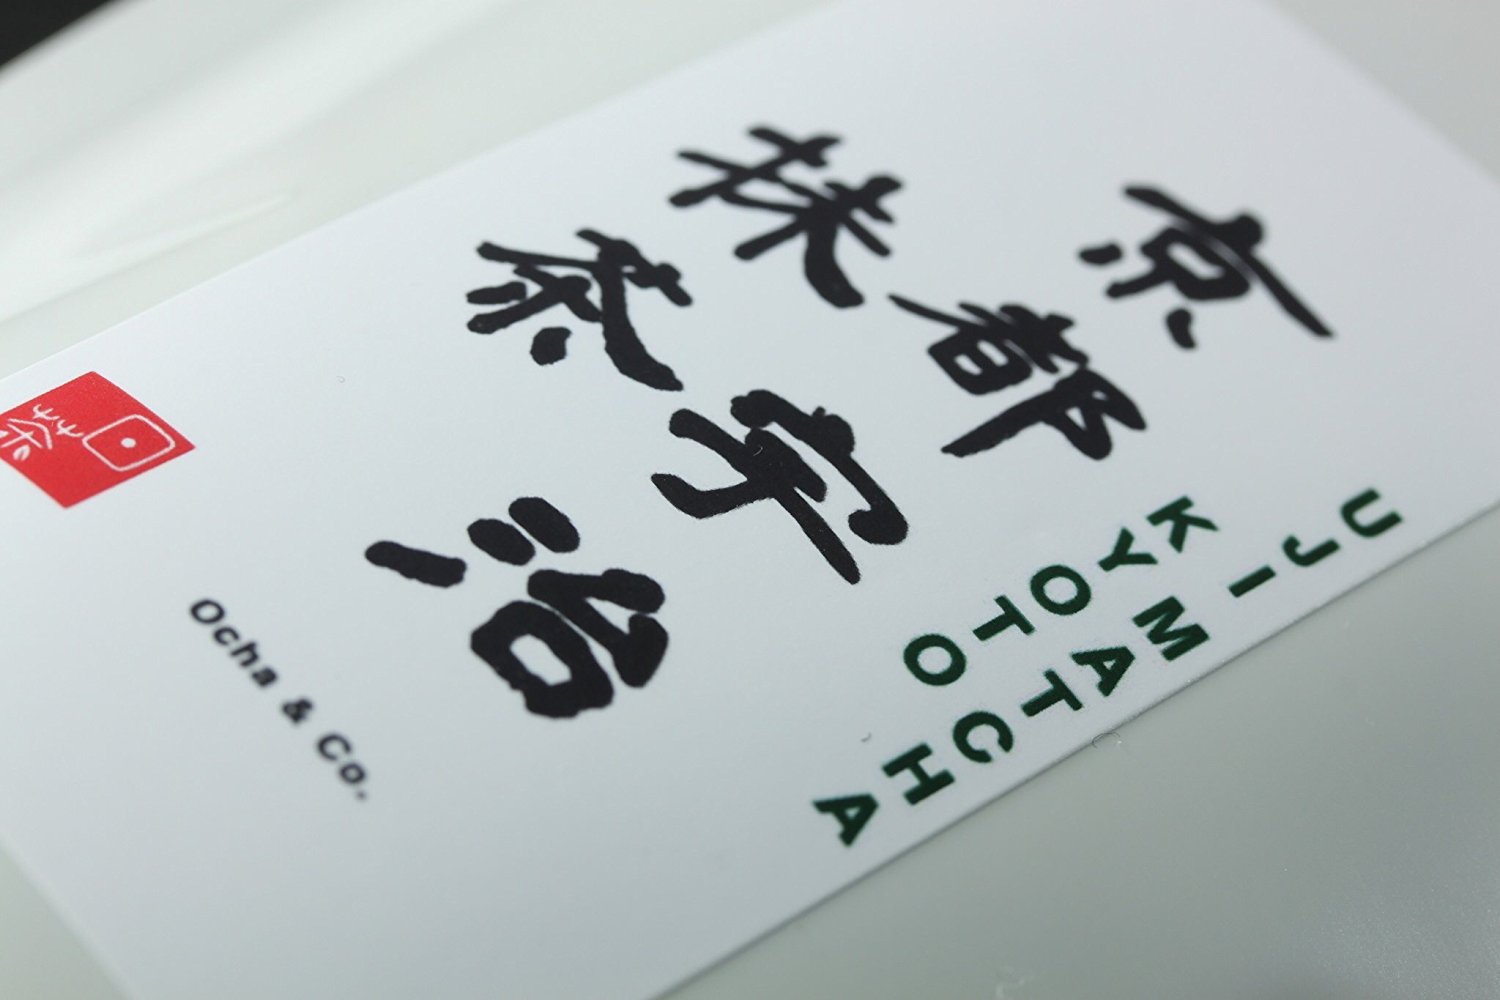 UJI MATCHA
KYOTO
京都宇治
抹茶
茶
Ocha & Co.